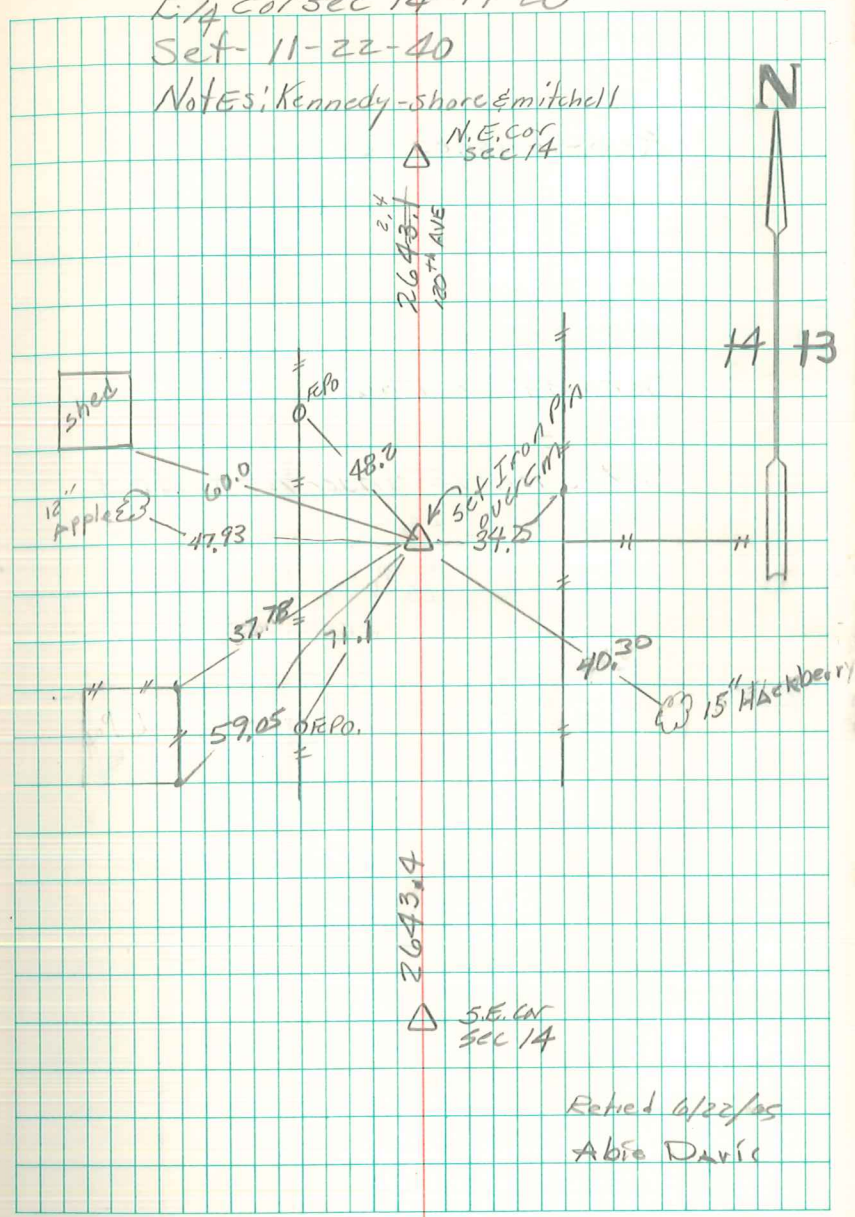 Cor sec 14
Set - 11-22-40
Notes; Kennedy - Shore & mitchell
N
N.E. Cor
sec 14
2.4
2643.1
120th AVE
14 13
shed
FCPO
48.2
60.0
Set Iron Pin
over C.M.
12"
Apple
47.93
34.75
37.78
71.1
40.30
15" HAckberry
59.05
FCPO.
2643.4
S.E. Cor
sec 14
Retied 6/22/05